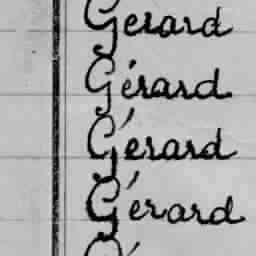 Gerard
Gérard
Gérard
Gérard